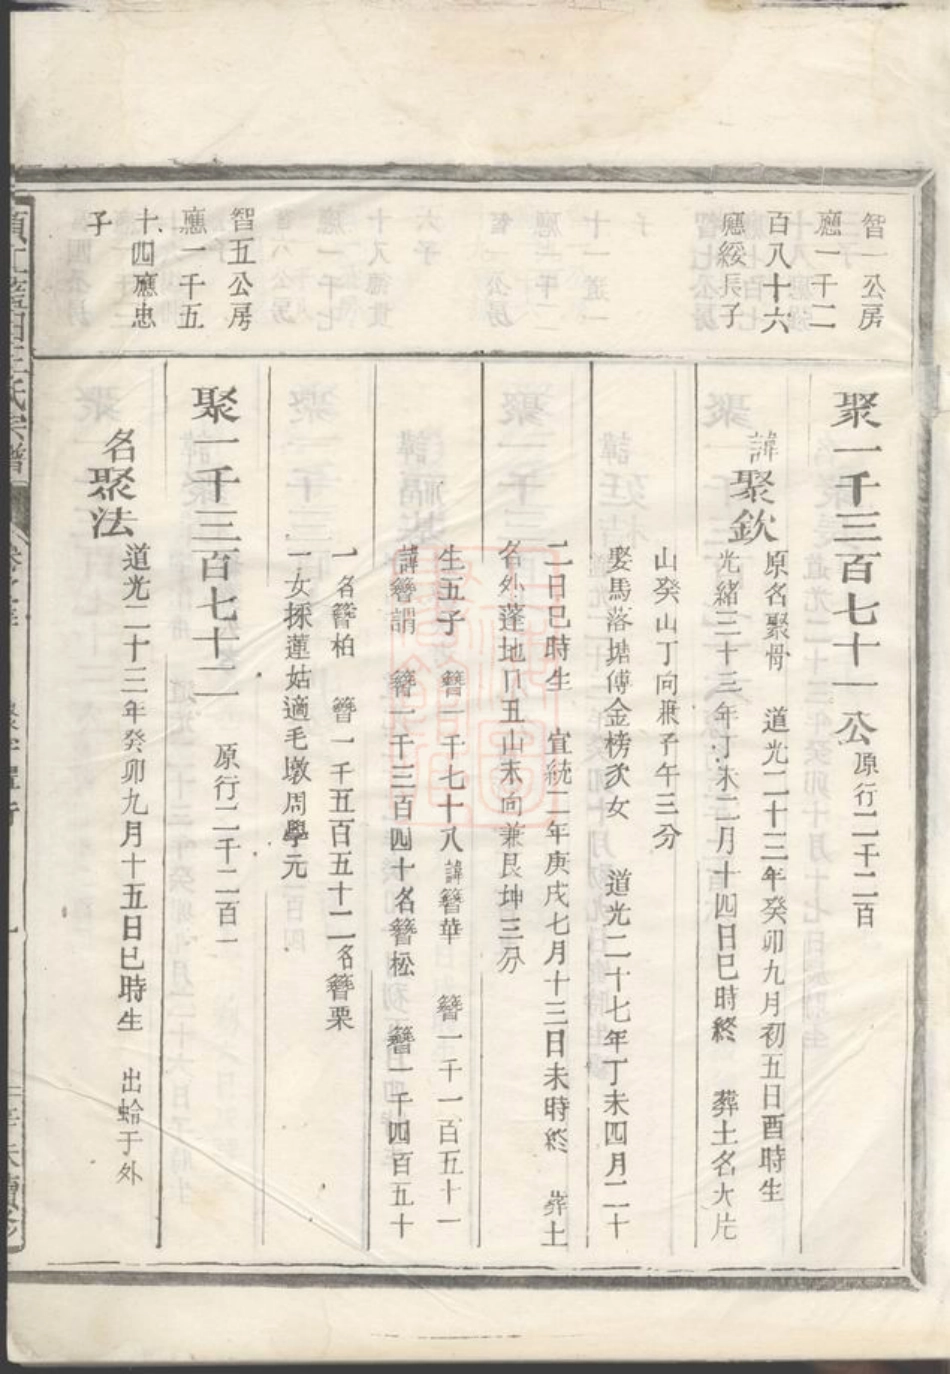 智一公房
應一千二
百八十六
應綏長子
聚一千三百七十一公 原行二千二百
諱聚欽
原名聚骨 道光二十三年癸卯九月初五日酉時生
光緒三十三年丁未二月十四日巳時終 葬土名大片
山癸山丁向兼子午三分
娶馬落塘傅金榜次女 道光二十七年丁未四月二十
二日巳時生 宣統二年庚戌七月十三日未時終 葬土
名外蓬地丑山未向兼艮坤三分
生五子 簪一千七十八諱簪華 簪一千一百五十一
諱簪謂 簪一千三百四十名簪松 簪一千四百五十
一名簪柏 簪一千五百五十二名簪栗
一女採蓮姑適毛墩周學元
智五公房
應一千五
十四應忠
子
聚一千三百七十二 原行二千二百一
名聚法
道光二十三年癸卯九月十五日巳時生 出蛤于外
王氏宗譜